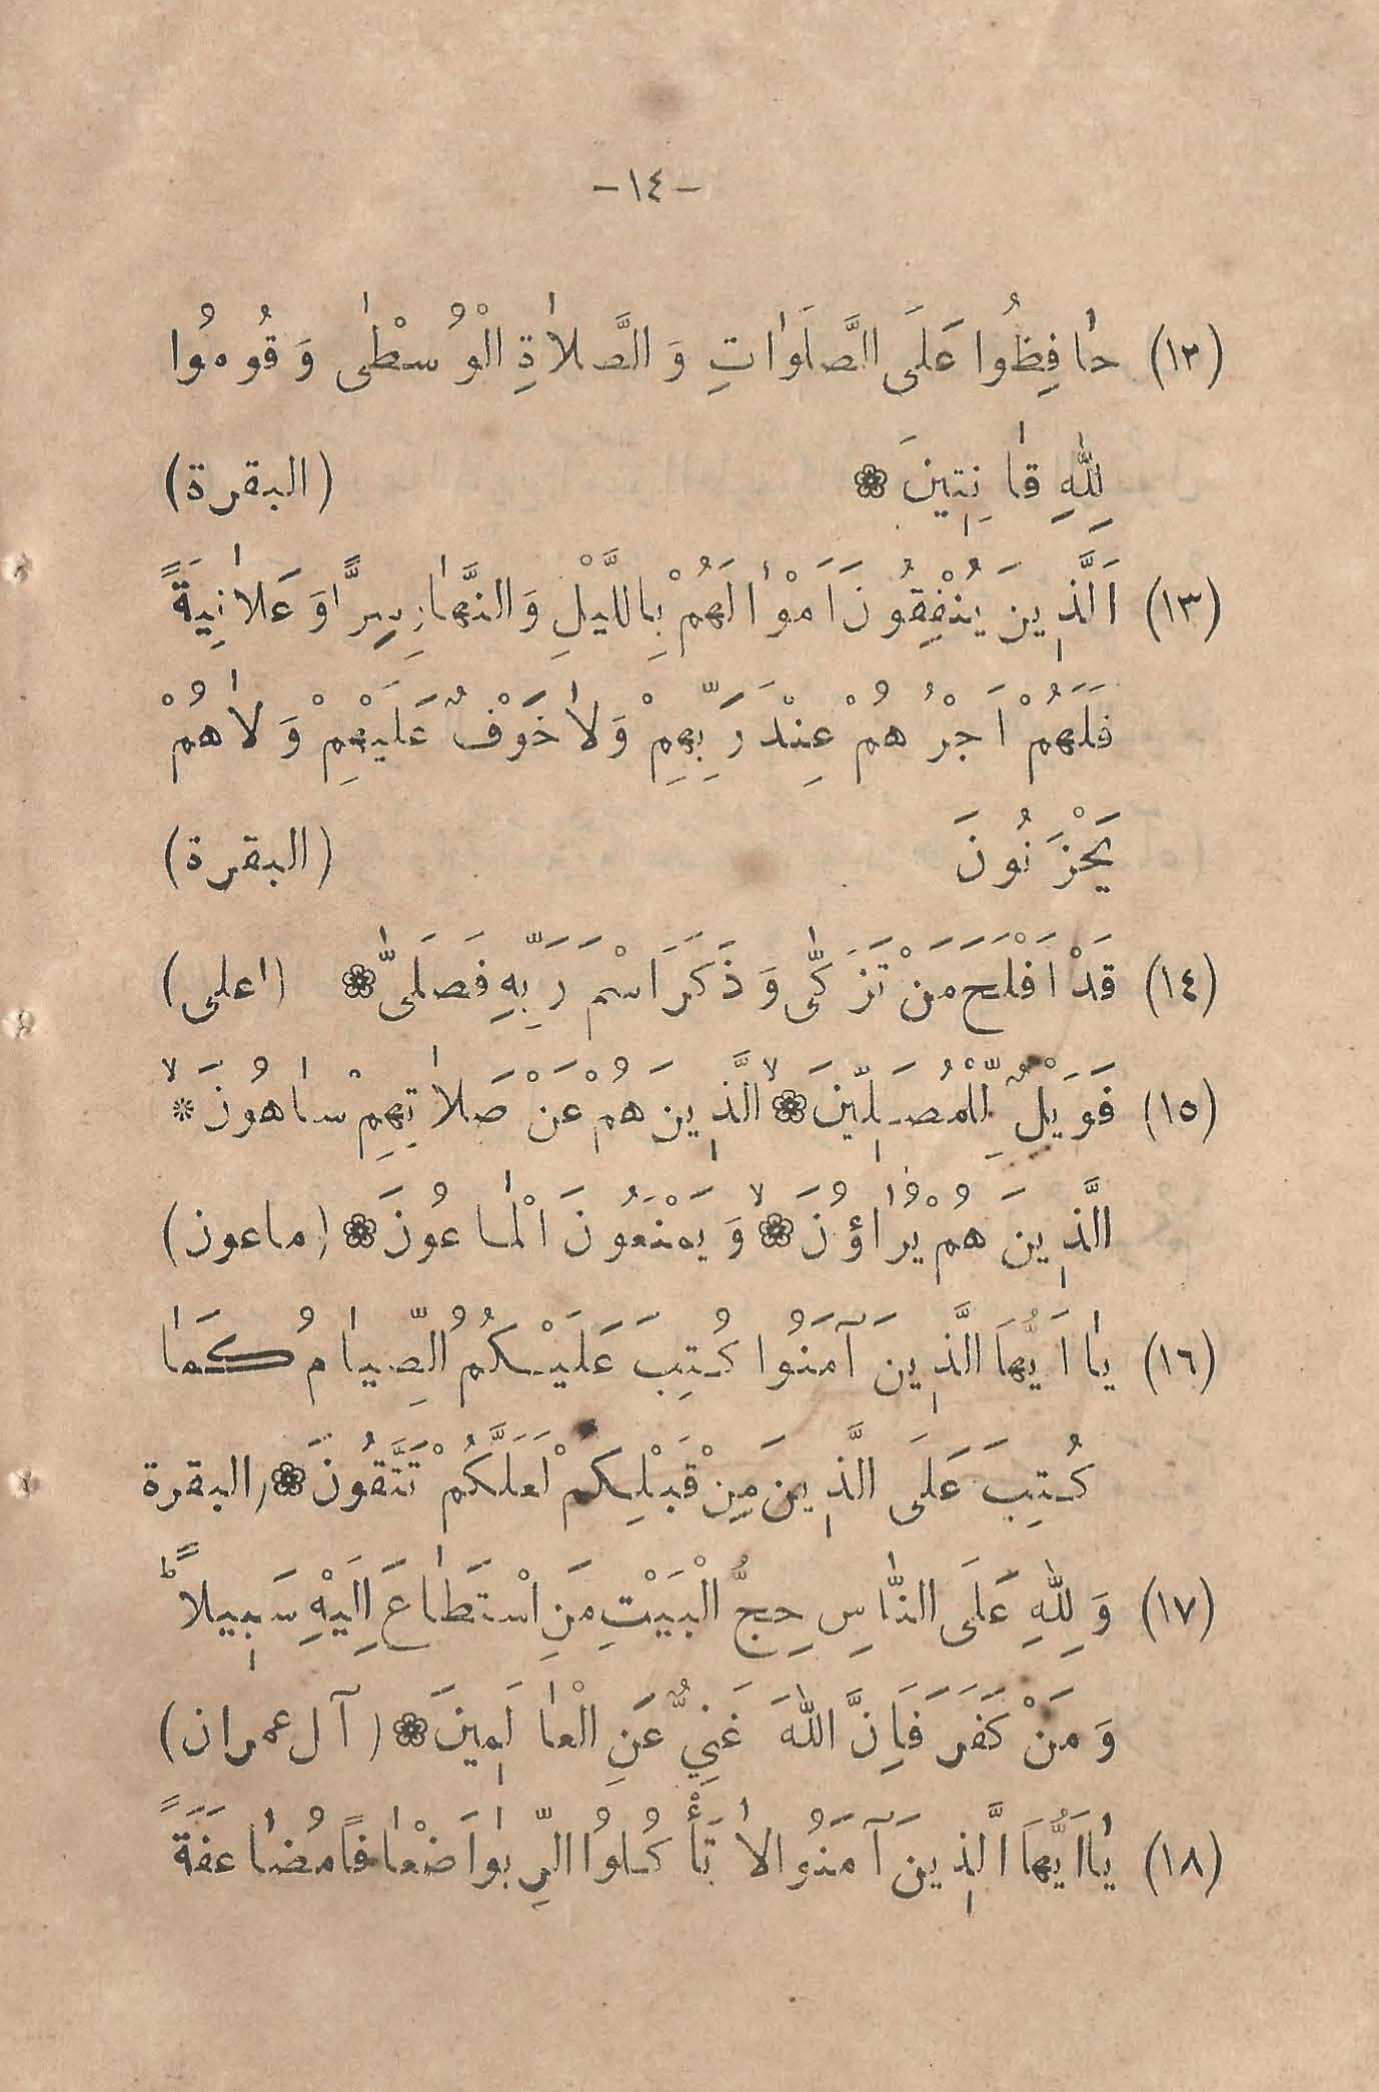 -١٤-
(١٢) حٰافِظُوا عَلَى الصَّلَوٰاتِ وَ الصَّلاٰةِ الْوُسْطٰى وَ قُومُوا
لِلّٰهِ قٰانِتِينَ ❁ (البقرة)
(١٣) اَلَّذِينَ يُنْفِقُونَ اَمْوٰالَهُمْ بِاللَّيْلِ وَ النَّهٰارِ سِرًّا وَ عَلاٰنِيَةً
فَلَهُمْ اَجْرُهُمْ عِنْدَ رَبِّهِمْ وَلاٰ خَوْفٌ عَلَيْهِمْ وَ لاٰ هُمْ
يَحْزَنُونَ (البقرة)
(١٤) قَدْ اَفْلَحَ مَنْ تَزَكّٰى وَ ذَكَرَ اسْمَ رَبِّهِ فَصَلّٰى ❁ (اعلى)
(١٥) فَوَيْلٌ لِلْمُصَلِّينَ ❁ۙ الَّذِينَ هُمْ عَنْ صَلاٰتِهِمْ سٰاهُونَ ❊ۙ
الَّذِينَ هُمْ يُرٰاؤُنَ ❁ۙ وَ يَمْنَعُونَ الْمٰاعُونَ ❁ (ماعون)
(١٦) يٰا اَيُّهَا الَّذِينَ آمَنُوا كُتِبَ عَلَيْكُمُ الصِّيٰامُ كَمٰا
كُتِبَ عَلَى الَّذِينَ مِنْ قَبْلِكُمْ لَعَلَّكُمْ تَتَّقُونَ ❁ (البقرة
(١٧) وَ لِلّٰهِ عَلَى النّٰاسِ حِجُّ الْبَيْتِ مَنِ اسْتَطٰاعَ اِلَيْهِ سَبِيلاًؕ
وَ مَنْ كَفَرَ فَاِنَّ اللّٰهَ غَنِيٌّ عَنِ الْعٰالَمِينَ ❁ (آل عمران)
(١٨) يٰا اَيُّهَا الَّذِينَ آمَنُوا لاٰ تَأْكُلُوا الرِّبٰوا اَضْعٰافًا مُضٰاعَفَةً